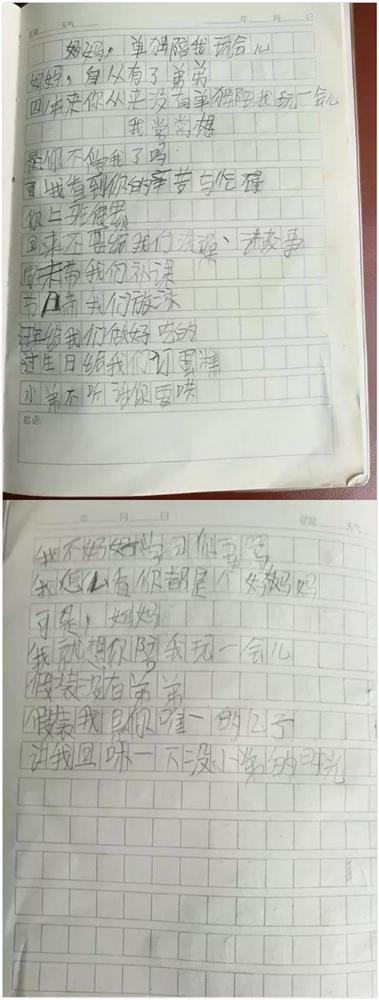 天气 年 月 日
妈妈，单独陪我玩会儿
妈妈，自从有了弟弟
回来你从来没有单独陪我玩一会儿
我常常想
是你不爱我了吗
可我看到你的辛苦与忙碌
你上班很累
回来还要给我们洗澡、讲故事
周末带我们补课
节日带我们放松
还给我们做好吃的
过生日给我们订蛋糕
小弟不听话你要哄
批语:
年 月 日 星期 天气
我不好好学习你要骂
我怎么看你都是个好妈妈
可是，妈妈
我就想你陪我玩一会儿
假装没有弟弟
假装我是你唯一的儿子
让我回味一下没小弟的时光